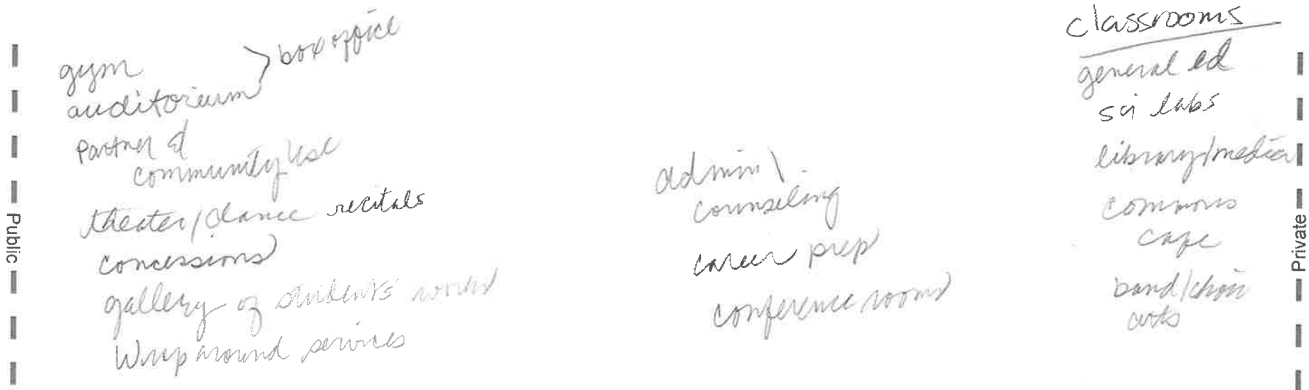 Public
gym
auditorium
} box office
Partner &
community use
theater/dance recitals
concessions
gallery of students works
Wrap around services
admin\
counseling
career prep
conference rooms
classrooms
general ed
sci labs
library/media
commons
cafe
band/choir
arts
Private